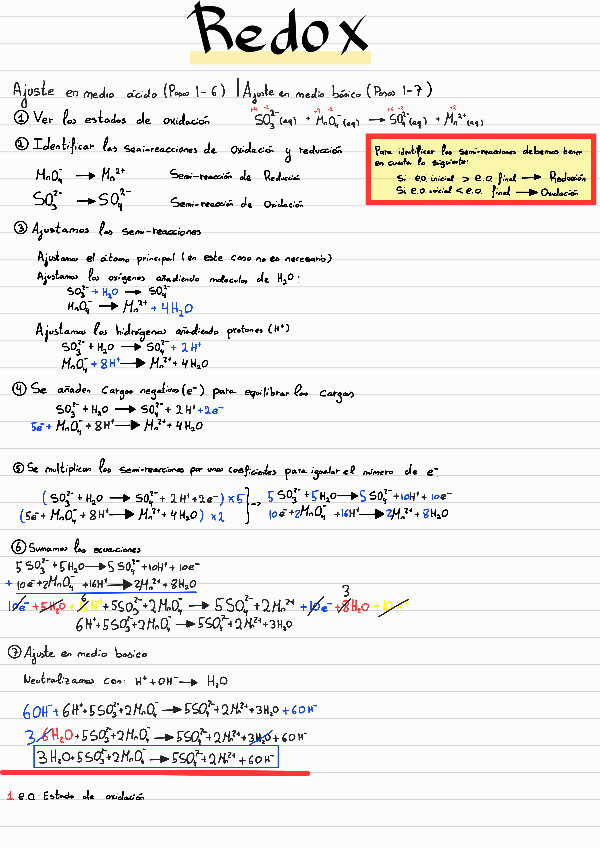 Redox
Ajuste en medio ácido (Pasos 1-6) | Ajuste en medio básico (Pasos 1-7)
① Ver los estados de oxidación
+4 -2 +7 -2 +6 -2 +2
SO₃²⁻(aq) + MnO₄⁻(aq) → SO₄²⁻(aq) + Mn²⁺(aq)
② Identificar las semi-reacciones de oxidación y reducción
MnO₄⁻ → Mn²⁺ Semi-reacción de Reducción
SO₃²⁻ → SO₄²⁻ Semi-reacción de Oxidación
Para identificar las semi-reacciones debemos tener
en cuenta lo siguiente:
Si e.o. inicial > e.o. final → Reducción
Si e.o. inicial < e.o. final → Oxidación
③ Ajustamos las semi-reacciones
Ajustamos el átomo principal (en este caso no es necesario)
Ajustamos los oxígenos añadiendo moleculas de H₂O:
SO₃²⁻ + H₂O → SO₄²⁻
MnO₄⁻ → Mn²⁺ + 4H₂O
Ajustamos los hidrógenos añadiendo protones (H⁺)
SO₃²⁻ + H₂O → SO₄²⁻ + 2H⁺
MnO₄⁻ + 8H⁺ → Mn²⁺ + 4H₂O
④ Se añaden cargas negativas (e⁻) para equilibrar las cargas
SO₃²⁻ + H₂O → SO₄²⁻ + 2H⁺ + 2e⁻
5e⁻ + MnO₄⁻ + 8H⁺ → Mn²⁺ + 4H₂O
⑤ Se multiplican las semi-reacciones por unos coeficientes para igualar el número de e⁻
(SO₃²⁻ + H₂O → SO₄²⁻ + 2H⁺ + 2e⁻) x5 → 5SO₃²⁻ + 5H₂O → 5SO₄²⁻ + 10H⁺ + 10e⁻
(5e⁻ + MnO₄⁻ + 8H⁺ → Mn²⁺ + 4H₂O) x2 10e⁻ + 2MnO₄⁻ + 16H⁺ → 2Mn²⁺ + 8H₂O
⑥ Sumamos las ecuaciones
5SO₃²⁻ + 5H₂O → 5SO₄²⁻ + 10H⁺ + 10e⁻
+ 10e⁻ + 2MnO₄⁻ + 16H⁺ → 2Mn²⁺ + 8H₂O
6 3
10e⁻ + 5H₂O + 16H⁺ + 5SO₃²⁻ + 2MnO₄⁻ → 5SO₄²⁻ + 2Mn²⁺ + 10e⁻ + 8H₂O + 10H⁺
6H⁺ + 5SO₃²⁻ + 2MnO₄⁻ → 5SO₄²⁻ + 2Mn²⁺ + 3H₂O
⑦ Ajuste en medio basico
Neutralizamos con: H⁺ + OH⁻ → H₂O
6OH⁻ + 6H⁺ + 5SO₃²⁻ + 2MnO₄⁻ → 5SO₄²⁻ + 2Mn²⁺ + 3H₂O + 6OH⁻
3 6H₂O + 5SO₃²⁻ + 2MnO₄⁻ → 5SO₄²⁻ + 2Mn²⁺ + 3H₂O + 6OH⁻
3H₂O + 5SO₃²⁻ + 2MnO₄⁻ → 5SO₄²⁻ + 2Mn²⁺ + 6OH⁻
1 e.o: Estado de oxidación